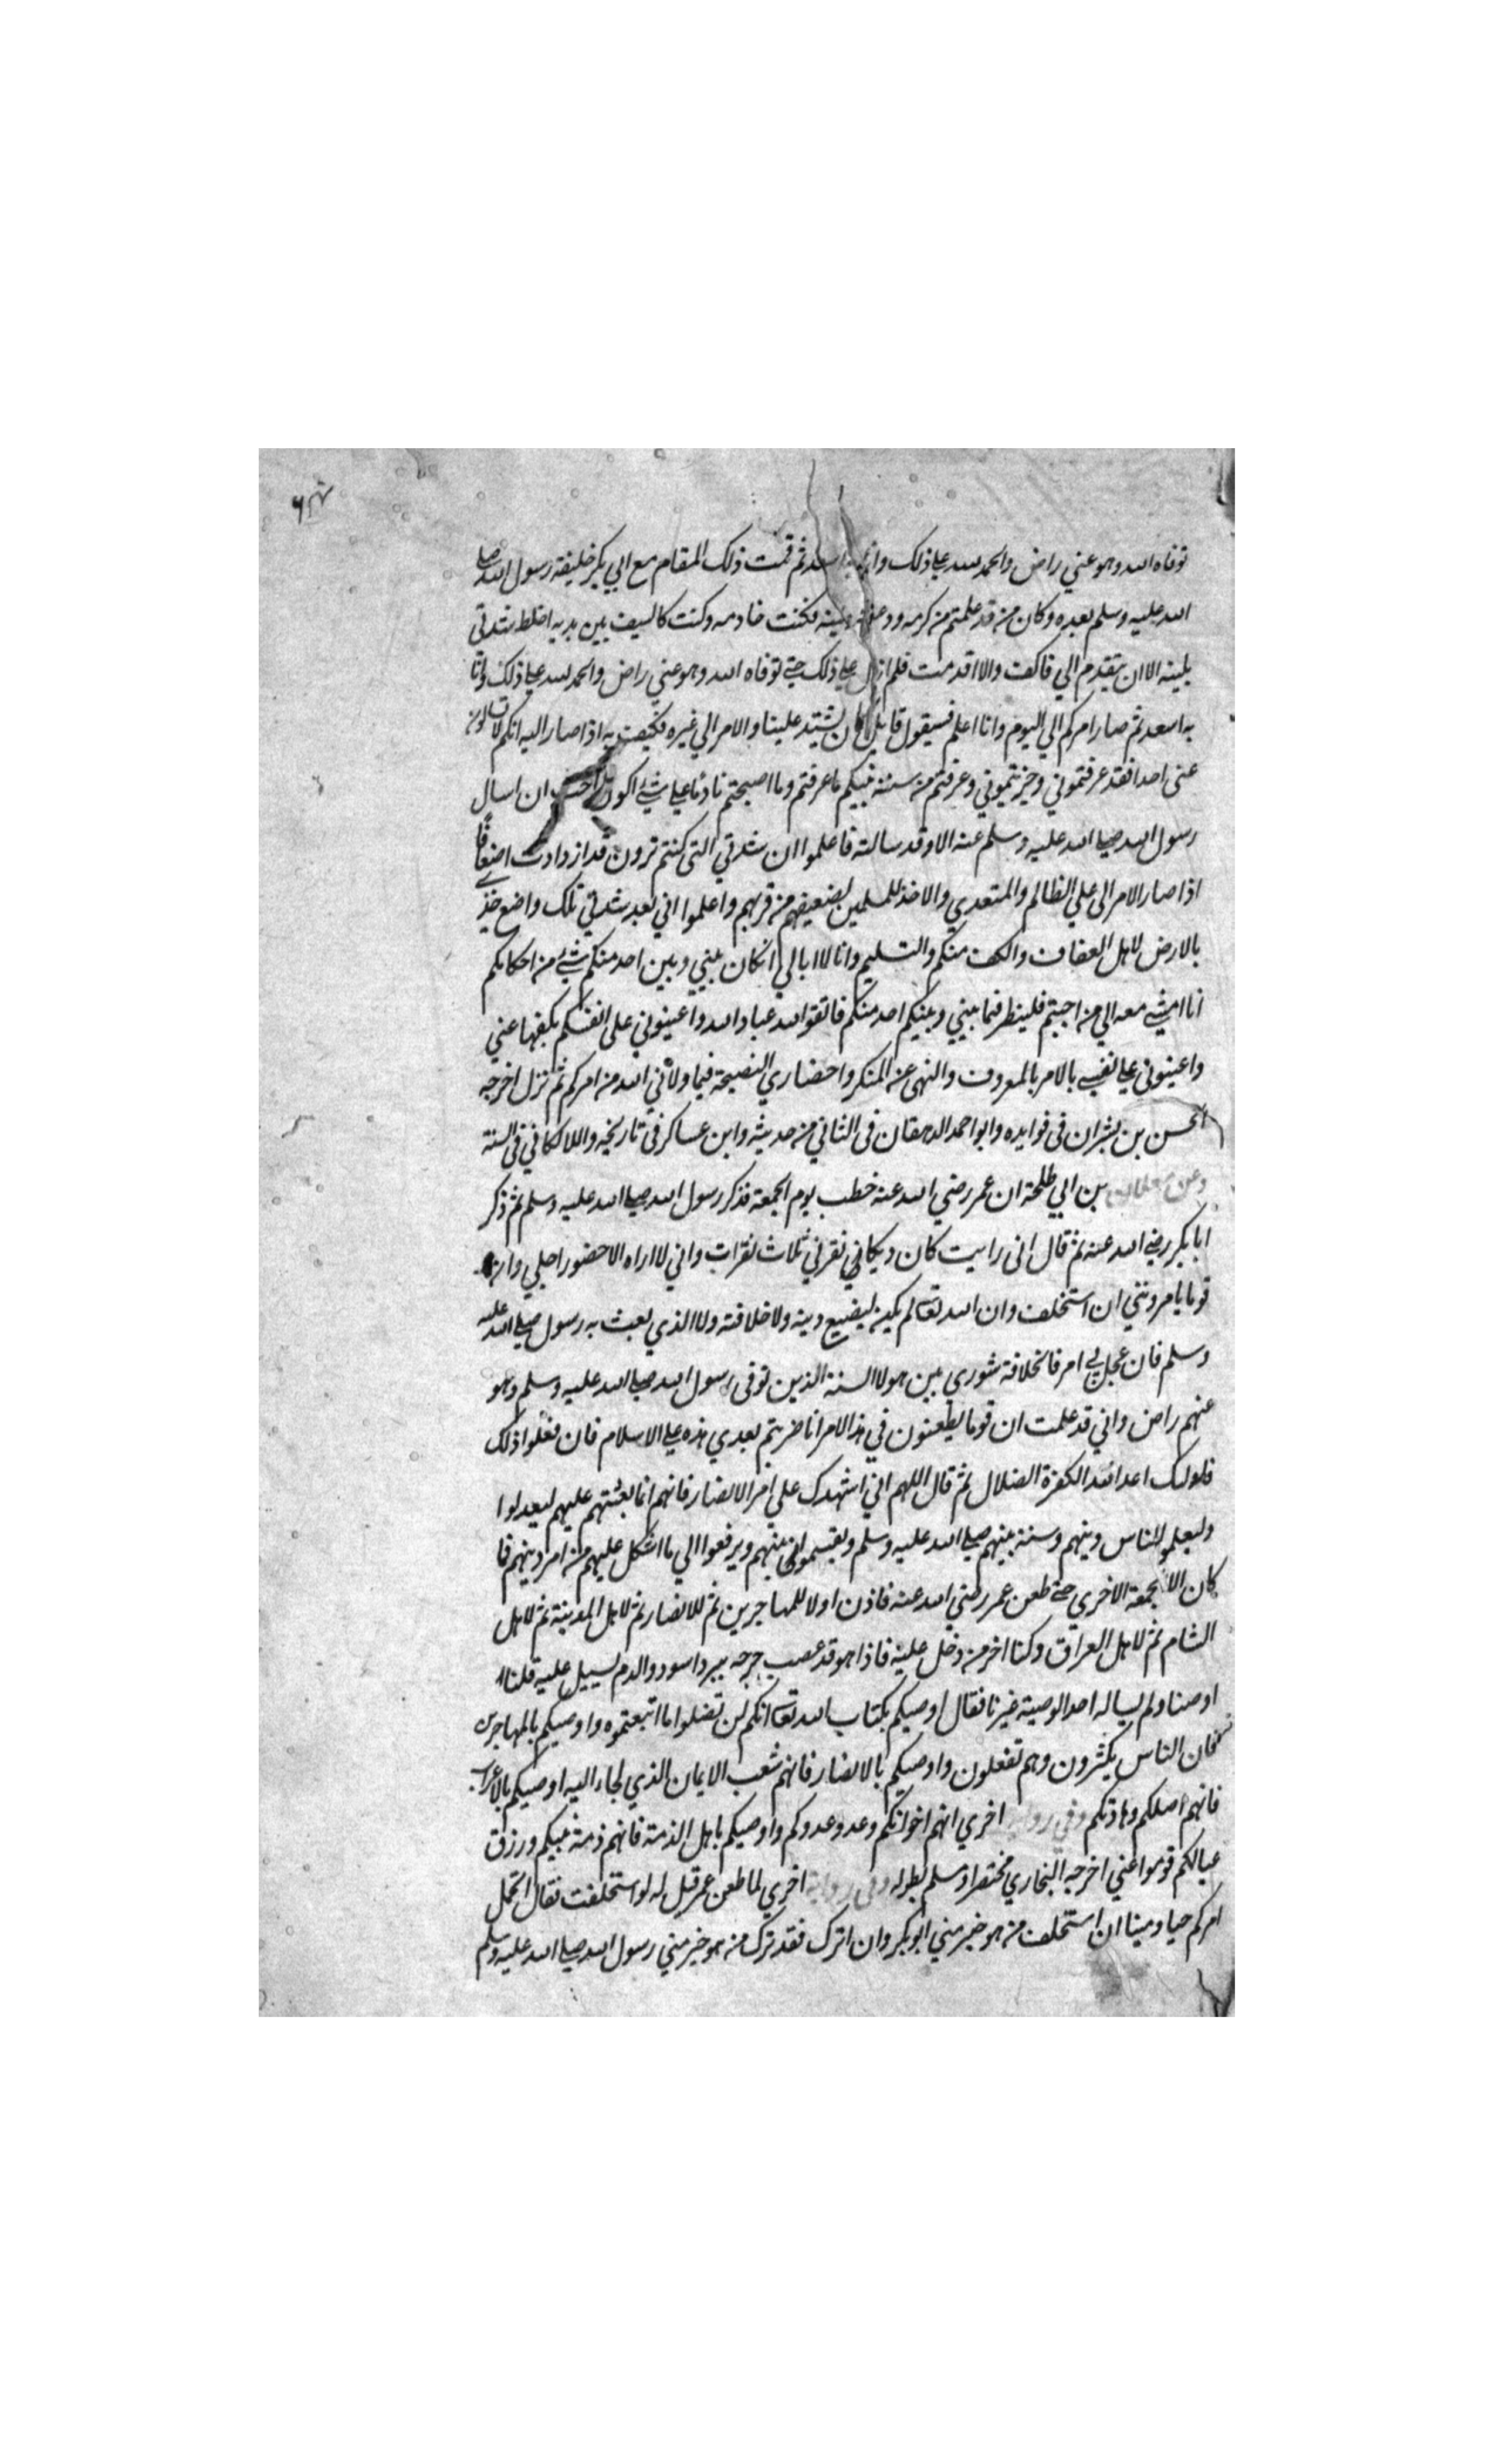 توفاه الله وهو عني راض والحمد لله علي ذلك وانا به اسعد ثم قمت ذلك المقام مع ابي بكر خليفة رسول الله صلي
الله عليه وسلم بعده وكان من قد علمتم من كرمه ودعته ولينه فكنت خادمه وكنت كالسيف بين يديه اخلط شدتي
بلينه الا ان يتقدم الي فاكف والا اقدمت فلم ازل علي ذلك حتي توفاه الله وهو عني راض والحمد لله علي ذلك وانا
به اسعد ثم صار امركم الي اليوم وانا اعلم فسيقول قايل كان يشتد علينا والامر الي غيره فكيف به اذا صار اليه انكم لا تسالون
عني احدا فقد عرفتموني وجربتموني وعرفتم من سنة نبيكم ما عرفتم وما اصبحتم نادما علي شئ اكون احب ان اسال
رسول الله صلي الله عليه وسلم عنه الا وقد سالته فاعلموا ان شدتي التي كنتم ترون قد ازدادت اضعافا
اذا صار الامر الي علي الظالم والمتعدي والاخذ للمسلمين لضعيفهم من قويهم واعلموا اني بعد شدتي تلك واضع خدي
بالارض لاهل العفاف والكف منكم والتسليم وانا لا ابالي ان كان بيني وبين احد منكم شئ من احكامكم
انا امشي معه الي من احببتم فلينظر فيما بيني وبينكم احد منكم فاتقوا الله عباد الله واعينوني علي انفسكم بكفها عني
واعينوني علي نفسي بالامر بالمعروف والنهي عن المنكر واحضاري النصيحة فيما ولاني الله من امركم ثم نزل اخرجه
الحسن بن بشران في فوايده وابو احمد الدهقان في الثاني من حديثه وابن عساكر في تاريخه واللالكائي في السنة
وعن معدان بن ابي طلحة ان عمر رضي الله عنه خطب يوم الجمعة فذكر رسول الله صلي الله عليه وسلم ثم ذكر
ابا بكر رضي الله عنه ثم قال اني رايت كان ديكا نقرني ثلاث نقرات واني لا اراه الا حضور اجلي وان
قوما يامرونني ان استخلف وان الله تعالي لم يكن ليضيع دينه ولا خلافته ولا الذي بعث به رسول صلي الله عليه
وسلم فان عجل بي امر فالخلافة شوري بين هولا الستة الذين توفي رسول الله صلي الله عليه وسلم وهو
عنهم راض واني قد علمت ان قوما يطعنون في هذا الامر انا ضربتهم بيدي هذه علي الاسلام فان فعلوا ذلك
فاولئك اعدا الله الكفرة الضلال ثم قال اللهم اني اشهدك علي امر الانصار فانهم انما بعثتهم عليهم ليعدلوا
وليعلموا الناس دينهم وسنة نبيهم صلي الله عليه وسلم ويقسموا بينهم ويرفعوا الي ما اشكل عليهم من امر دينهم فما
كان الا الجمعة الاخري حتي طعن عمر رضي الله عنه فاذن اولا للمهاجرين ثم للانصار ثم لاهل المدينة ثم لاهل
الشام ثم لاهل العراق وكنا اخر من دخل عليه فاذا هو قد عصب جرحه ببرد اسود والدم يسيل عليه قلنا
اوصنا ولم يساله احد الوصية غيرنا فقال اوصيكم بكتاب الله تعالي انكم لن تضلوا ما اتبعتموه واوصيكم بالمهاجرين
فان الناس يكثرون وهم تفعلون واوصيكم بالانصار فانهم شعب الايمان الذي لجاء اليه اوصيكم بالاعراب
فانهم اصلكم ومادتكم وفي رواية اخري انهم اخوانكم وعدو عدوكم واوصيكم باهل الذمة فانهم ذمة نبيكم ورزق
عيالكم قوموا عني اخرجه البخاري مختصرا ومسلم بطوله وفي رواية اخري لما طعن عمر قيل له لو استخلفت فقال اتحمل
امركم حيا وميتا ان استخلف من هو خير مني ابو بكر وان اترك فقد ترك من هو خير مني رسول الله صلي الله عليه وسلم